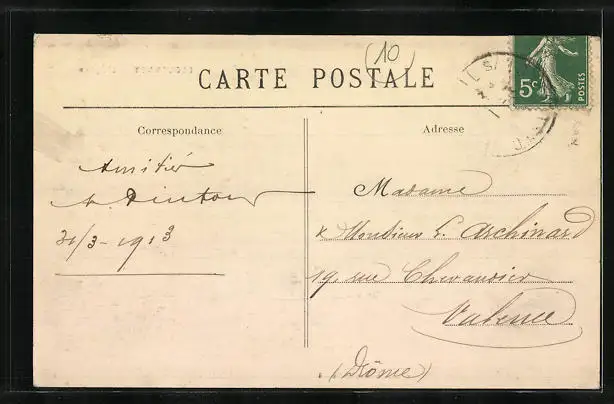 (10)
CARTE POSTALE
5c
POSTES
Correspondance
Amitiés
31/3-1913
Adresse
Madame
& Monsieur L. Archinard
19, rue Chevandier
Valence
(Drôme)